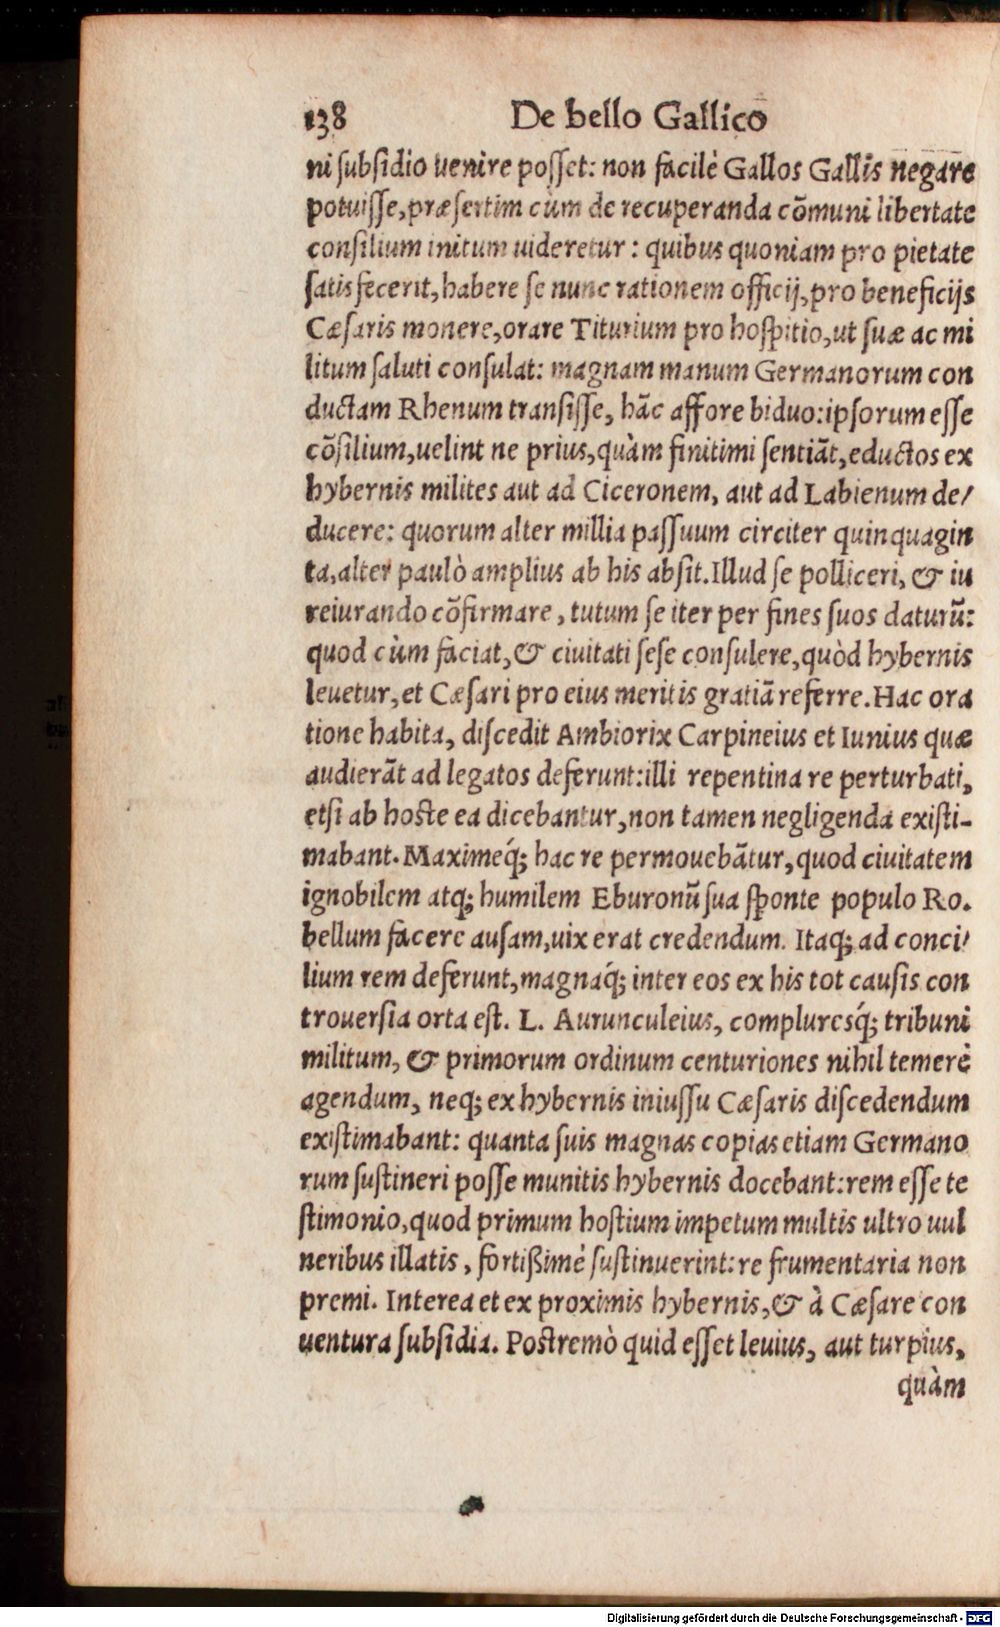 138 De bello Gallico
ni ſubſidio uenire poſſet: non facilè Gallos Gallis negare
potuiſſe, præſertim cùm de recuperanda cõmuni libertate
conſilium initum uideretur: quibus quoniam pro pietate
ſatisfecerit, habere ſe nunc rationem officij, pro beneficijs
Cæſaris monere, orare Titurium pro hoſpitio, ut ſuæ ac mi
litum ſaluti conſulat: magnam manum Germanorum con
ductam Rhenum tranſiſſe, hãc affore biduo: ipſorum eſſe
cõſilium, uelint ne prius, quàm finitimi ſentiãt, eductos ex
hybernis milites aut ad Ciceronem, aut ad Labienum de/
ducere: quorum alter millia paſſuum circiter quinquagin
ta, alter paulò amplius ab his abſit. Illud ſe polliceri, & iu
reiurando cõfirmare, tutum ſe iter per fines ſuos daturũ:
quod cùm faciat, & ciuitati ſeſe conſulere, quòd hybernis
leuetur, et Cæſari pro eius meritis gratiã referre. Hac ora
tione habita, diſcedit Ambiorix Carpineius et Iunius quæ
audierãt ad legatos deferunt: illi repentina re perturbati,
etſi ab hoſte ea dicebantur, non tamen negligenda exiſti-
mabant. Maximeq́; hac re permouebãtur, quod ciuitatem
ignobilem atq; humilem Eburonũ ſua ſponte populo Ro.
bellum facere auſam, uix erat credendum. Itaq; ad conci/
lium rem deferunt, magnaq́; inter eos ex his tot cauſis con
trouerſia orta eſt. L. Aurunculeius, complureſq́; tribuni
militum, & primorum ordinum centuriones nihil temerè
agendum, neq; ex hybernis iniuſſu Cæſaris diſcedendum
exiſtimabant: quanta ſuis magnas copias etiam Germano
rum ſuſtineri poſſe munitis hybernis docebant: rem eſſe te
ſtimonio, quod primum hoſtium impetum multis ultro uul
neribus illatis, fortißimè ſuſtinuerint: re frumentaria non
premi. Interea et ex proximis hybernis, & à Cæſare con
uentura ſubſidia. Poſtremò quid eſſet leuius, aut turpius,
quàm
Digitalisierung gefördert durch die Deutsche Forschungsgemeinschaft - DFG